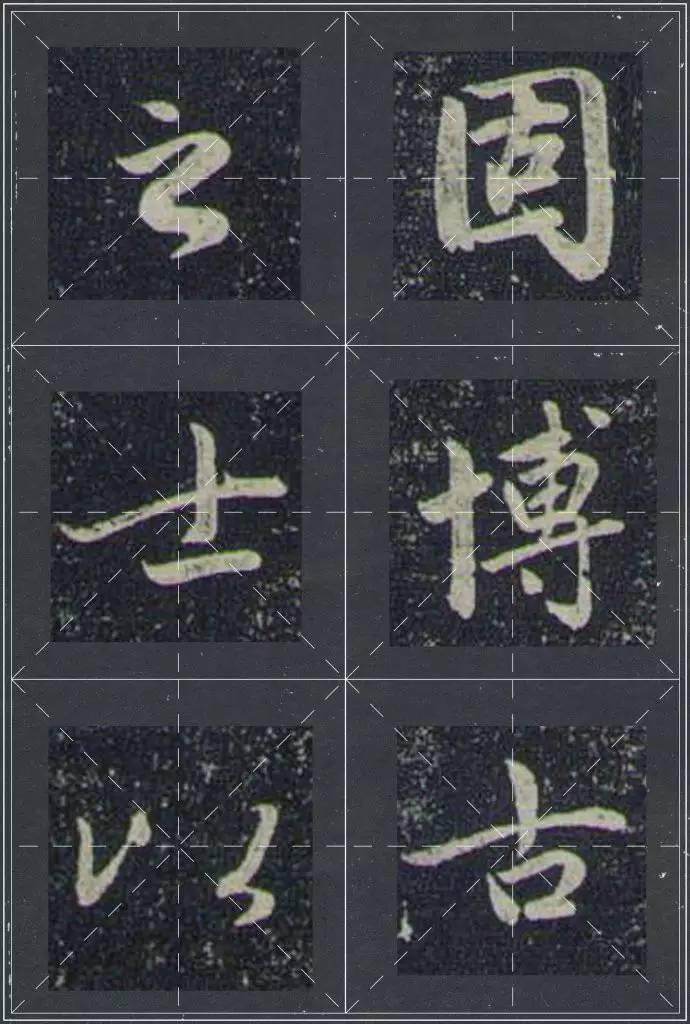 固博古
之士以